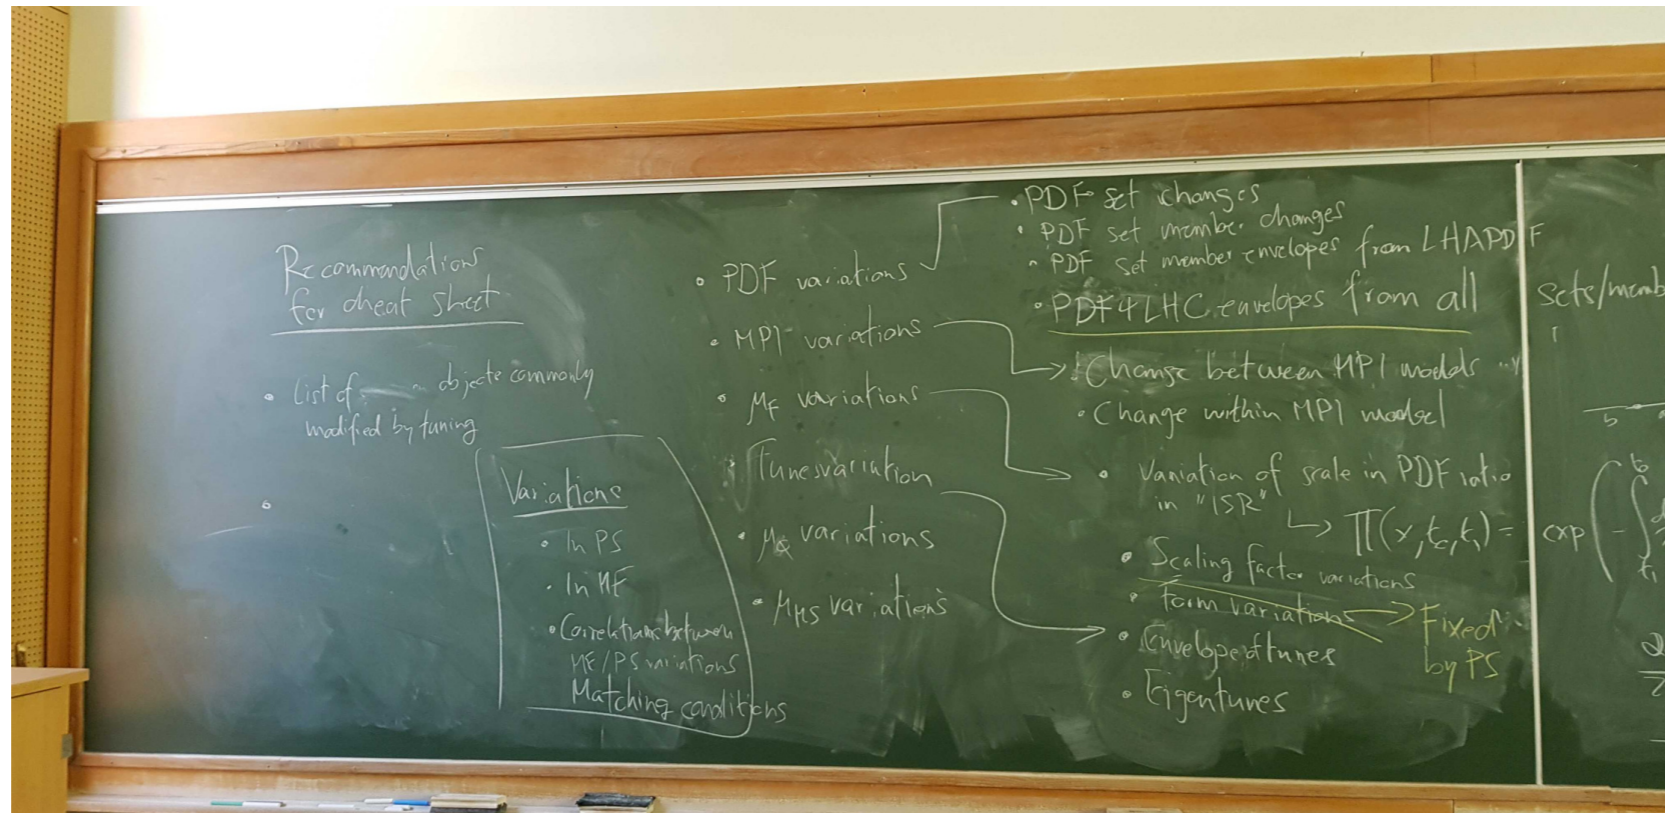 Recommendations
for cheat sheet
• List of objects commonly
modified by tuning
•
Variations
• In PS
• In ME
• Correlations between
ME/PS variations
Matching conditions
• PDF variations
• MPI variations
• μF variations
• Tunes variation
• μQ variations
• variations
• PDF set changes
• PDF set member changes
• PDF set member envelopes from LHAPDF
• PDF4LHC envelopes from all sets/memb
• Change between MPI models
• Change within MPI model
• Variation of scale in PDF ratio
in "ISR"
• Scaling factor variations
• Form variations → Fixed
by PS
• Envelope of tunes
• Eigentunes
exp